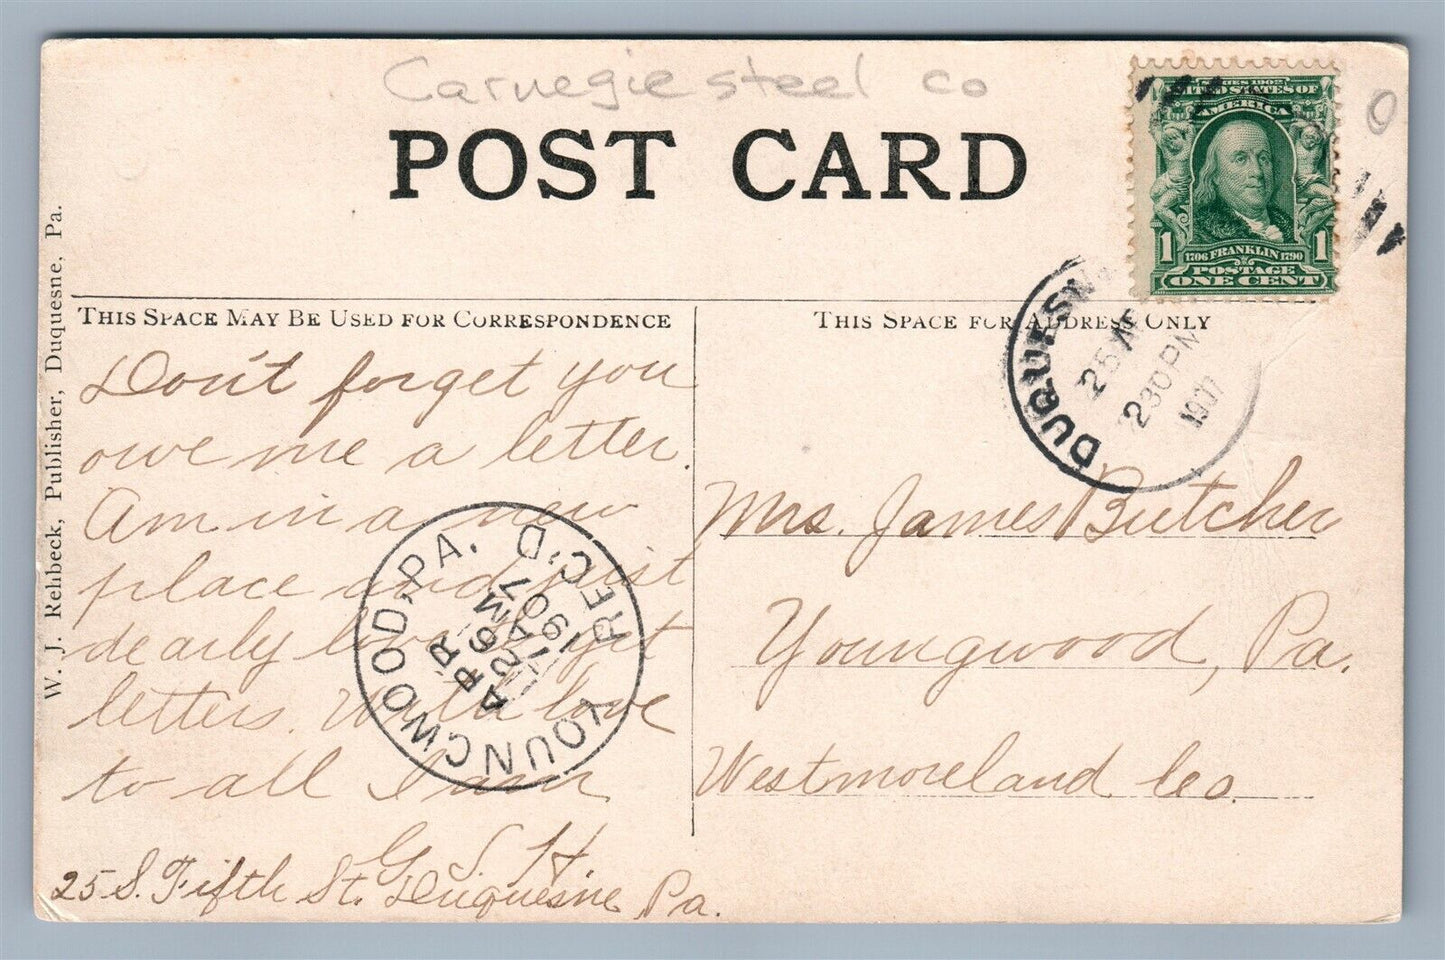 Carnegie steel co
POST CARD
0
SERIES 1902
UNITED STATES OF
AMERICA
1 1706 FRANKLIN 1790 1
POSTAGE
ONE CENT
W. J. Rehbeck, Publisher, Duquesne, Pa.
THIS SPACE MAY BE USED FOR CORRESPONDENCE
Don't forget you
owe me a letter.
Am in a new
place and just
dearly love to get
letters. With love
to all I am
G S H
25 S. Fifth St. Duquesne Pa.
YOUNGWOOD, PA. REC'D.
APR
26
1907
THIS SPACE FOR ADDRESS ONLY
DUQUESNE
25 AP
230 PM
1907
Mrs. James Butcher
Youngwood, Pa.
Westmoreland Co.